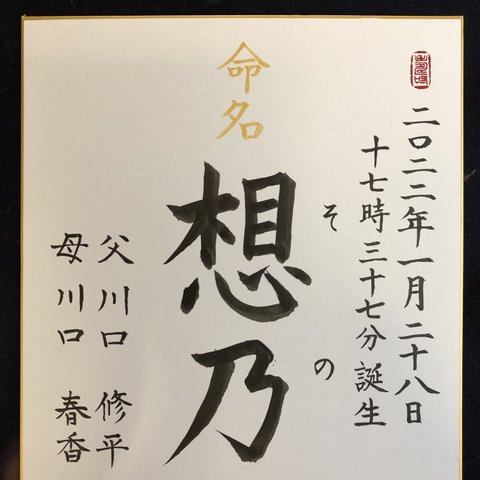 二〇二二年一月二十八日
十七時三十七分誕生
命名
想乃
その
父 川口 修平
母 川口 春香